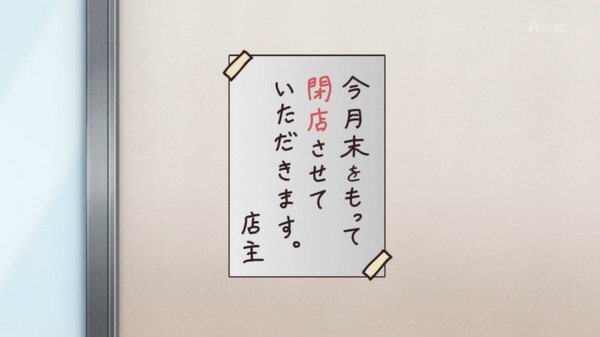 今月末をもって
閉店させて
いただきます。
店主